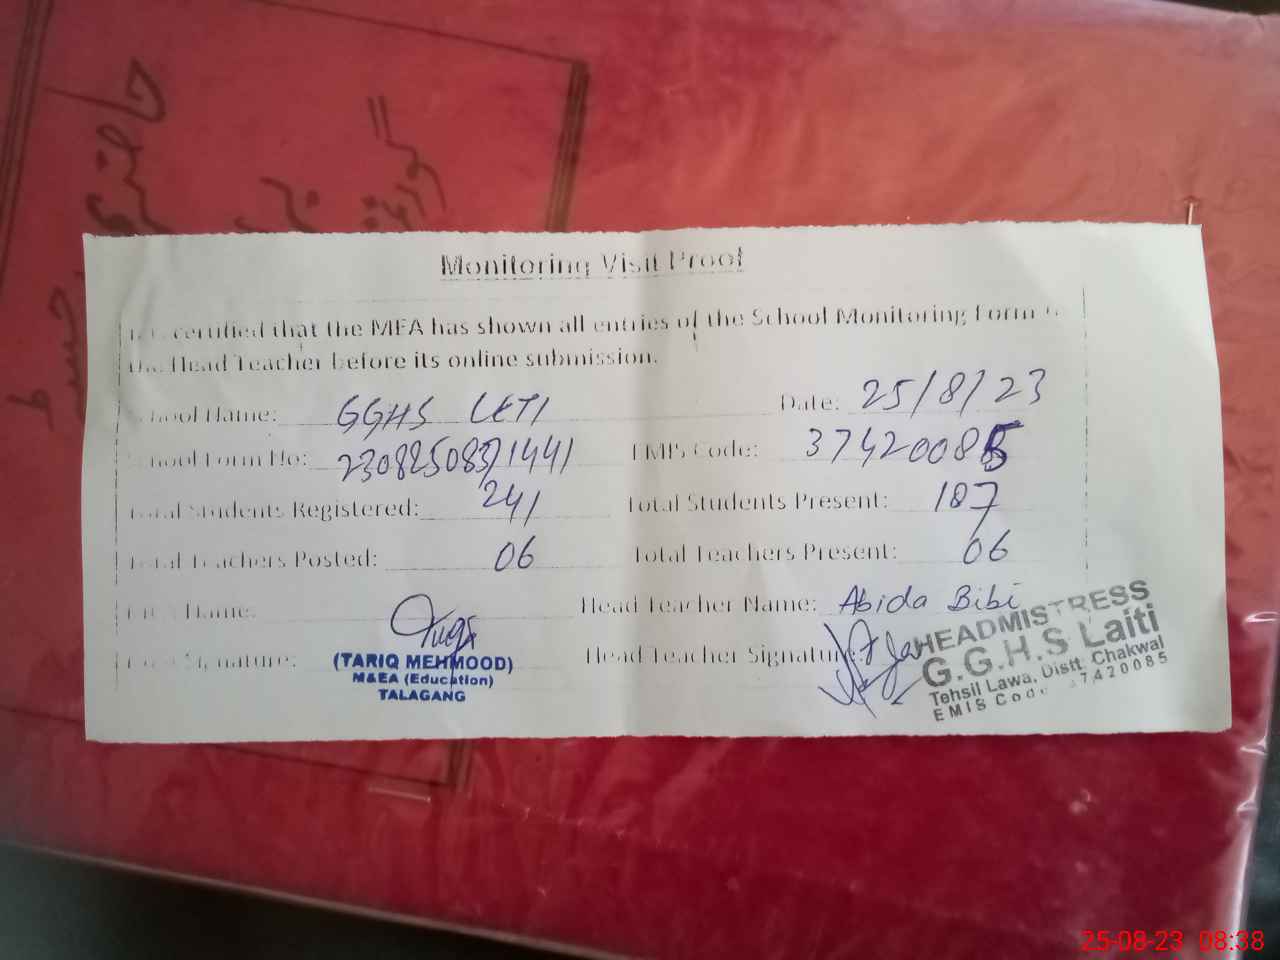 حاضری
Monitoring Visit Proof
certified that the MEA has shown all entries of the School Monitoring Form to
the Head Teacher before its online submission.
School Name: GGHS LETI Date: 25/8/23
School Form No: EMIS Code: 37420085
Total Students Registered: 241 Total Students Present: 187
Total Teachers Posted: 06 Total Teachers Present: 06
Name: Head Teacher Name: Abida Bibi
Signature: Head Teacher Signature:
(TARIQ MEHMOOD)
M&EA (Education)
TALAGANG
HEADMISTRESS
G.G.H.S Laiti
Tehsil Lawa, Distt: Chakwal
EMIS Code 37420085
25-08-23 08:38